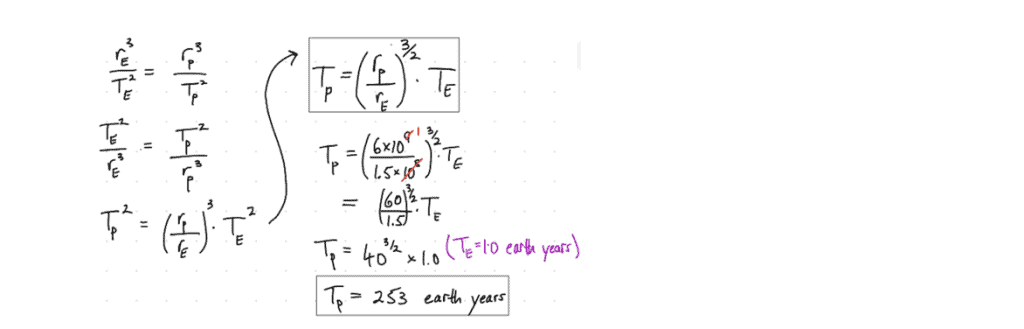 r_E^3 / T_E^2 = r_p^3 / T_p^2
T_E^2 / r_E^3 = T_p^2 / r_p^3
T_p^2 = (r_p / r_E)^3 · T_E^2
T_p = (r_p / r_E)^{3/2} · T_E
T_p = (6×10^9 1 / 1.5×10^8)^{3/2} · T_E
= (60 / 1.5)^{3/2} · T_E
T_p = 40^{3/2} × 1.0 (T_E = 1.0 earth years)
T_p = 253 earth years